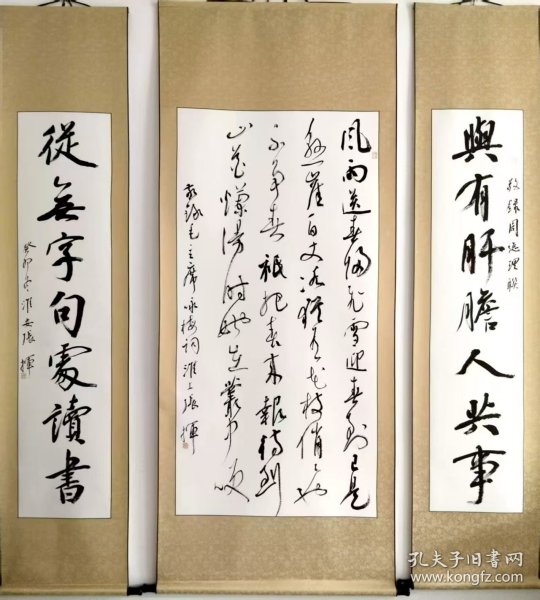 與有肝膽人共事
敬録周总理聯
風雨送春歸飛雪迎春到已是
懸崖百丈冰猶有花枝俏々也
不争春祇把春来報待到
山花爛漫時她在叢中笑
敬錄毛主席咏梅詞淮上張揮
從無字句處讀書
癸卯冬淮安張揮
孔夫子旧书网
www.kongfz.com